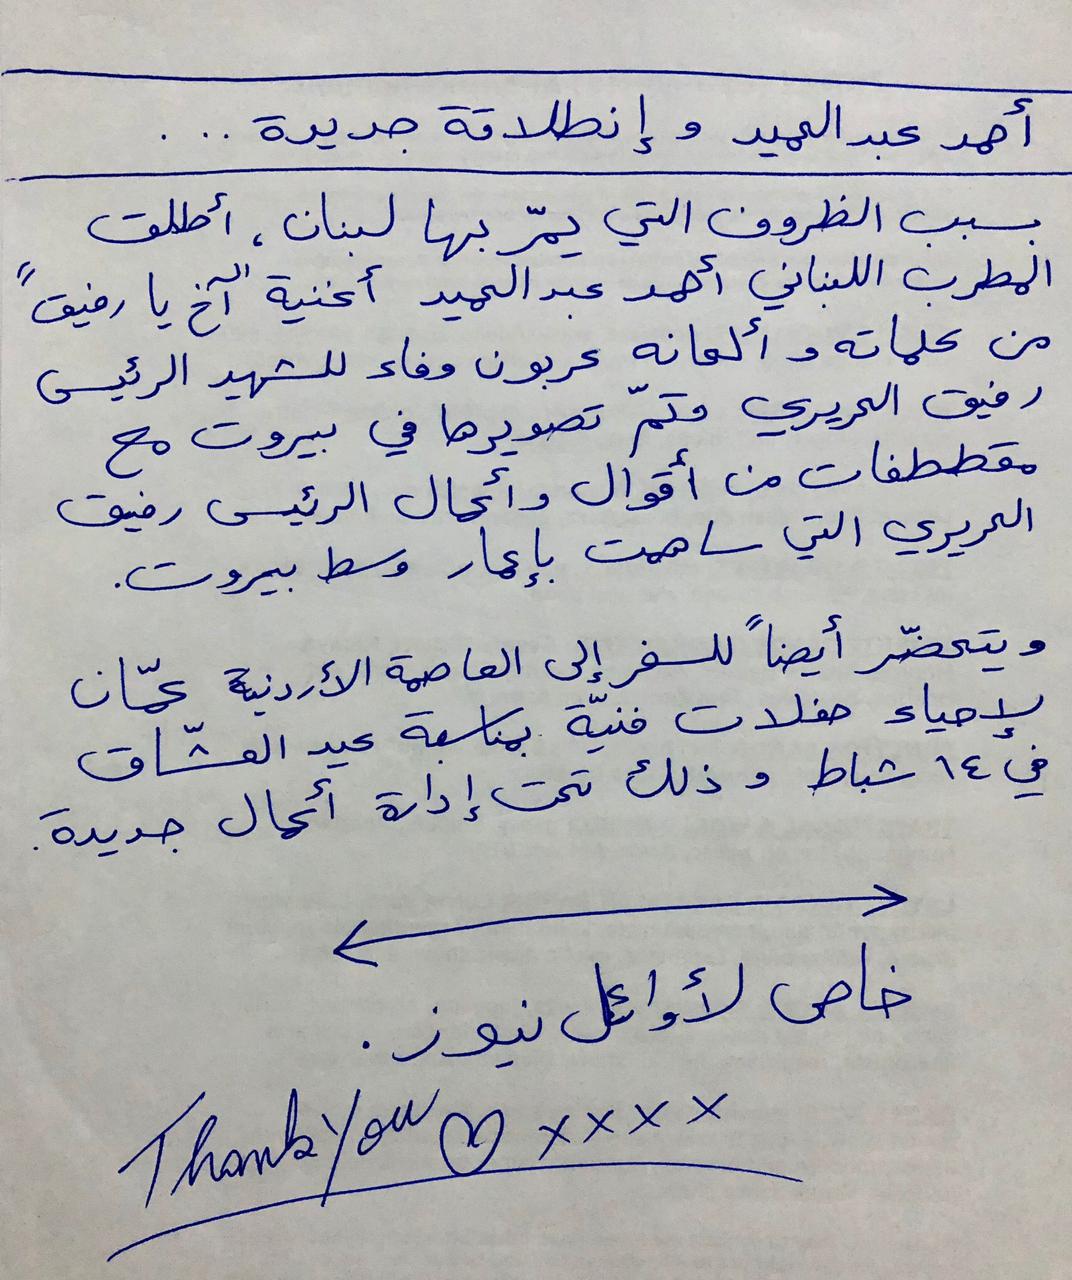 أحمد عبد الحميد و إنطلاقة جديدة . . .
بسبب الظروف التي يمرّ بها لبنان ، أطلق
المطرب اللبناني أحمد عبد الحميد أغنية "آخ يا رفيق"
من كلماته و ألحانه عربون وفاء للشهيد الرئيس
رفيق الحريري وتمّ تصويرها في بيروت مع
مقططفات من أقوال وأعمال الرئيس رفيق
الحريري التي ساهمت بإعمار وسط بيروت.
و يتحضّر أيضاً للسفر إلى العاصمة الأردنية عمّان
لإحياء حفلات فنيّة بمناسبة عيد العشّاق
في ١٤ شباط و ذلك تحت إدارة أعمال جديدة.
خاص لأوائل نيوز.
Thank You ♡ x x x x